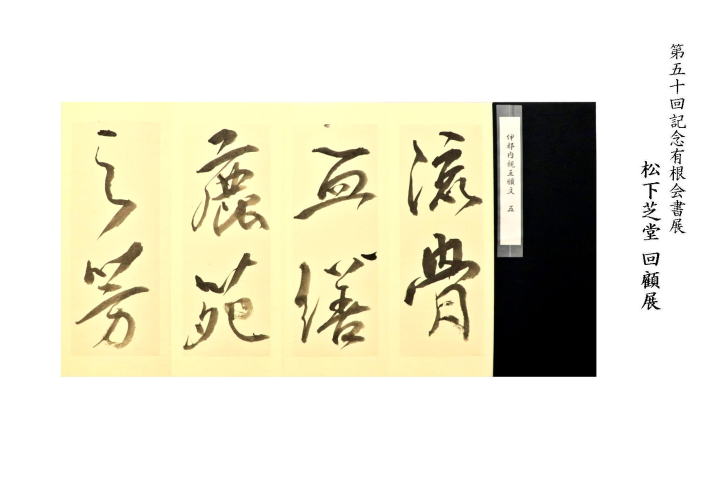 第五十回記念有根会書展
松下芝堂 回顧展
伊都内親王願文 五
流骨
血繕
鹿苑
之芳